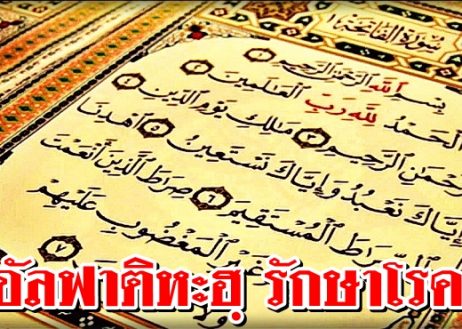 سُورَةُ الفَاتِحَةِ
بِسْمِ ٱللَّهِ ٱلرَّحْمَٰنِ ٱلرَّحِيمِ ١
ٱلْحَمْدُ لِلَّهِ رَبِّ ٱلْعَٰلَمِينَ ٢
ٱلرَّحْمَٰنِ ٱلرَّحِيمِ ٣ مَٰلِكِ يَوْمِ ٱلدِّينِ ٤
إِيَّاكَ نَعْبُدُ وَإِيَّاكَ نَسْتَعِينُ ٥ ٱهْدِنَا
ٱلصِّرَٰطَ ٱلْمُسْتَقِيمَ ٦ صِرَٰطَ ٱلَّذِينَ أَنْعَمْتَ
غَيْرِ ٱلْمَغْضُوبِ عَلَيْهِمْ
وَلَا ٧
อัลฟาติหะฮฺ รักษาโรค